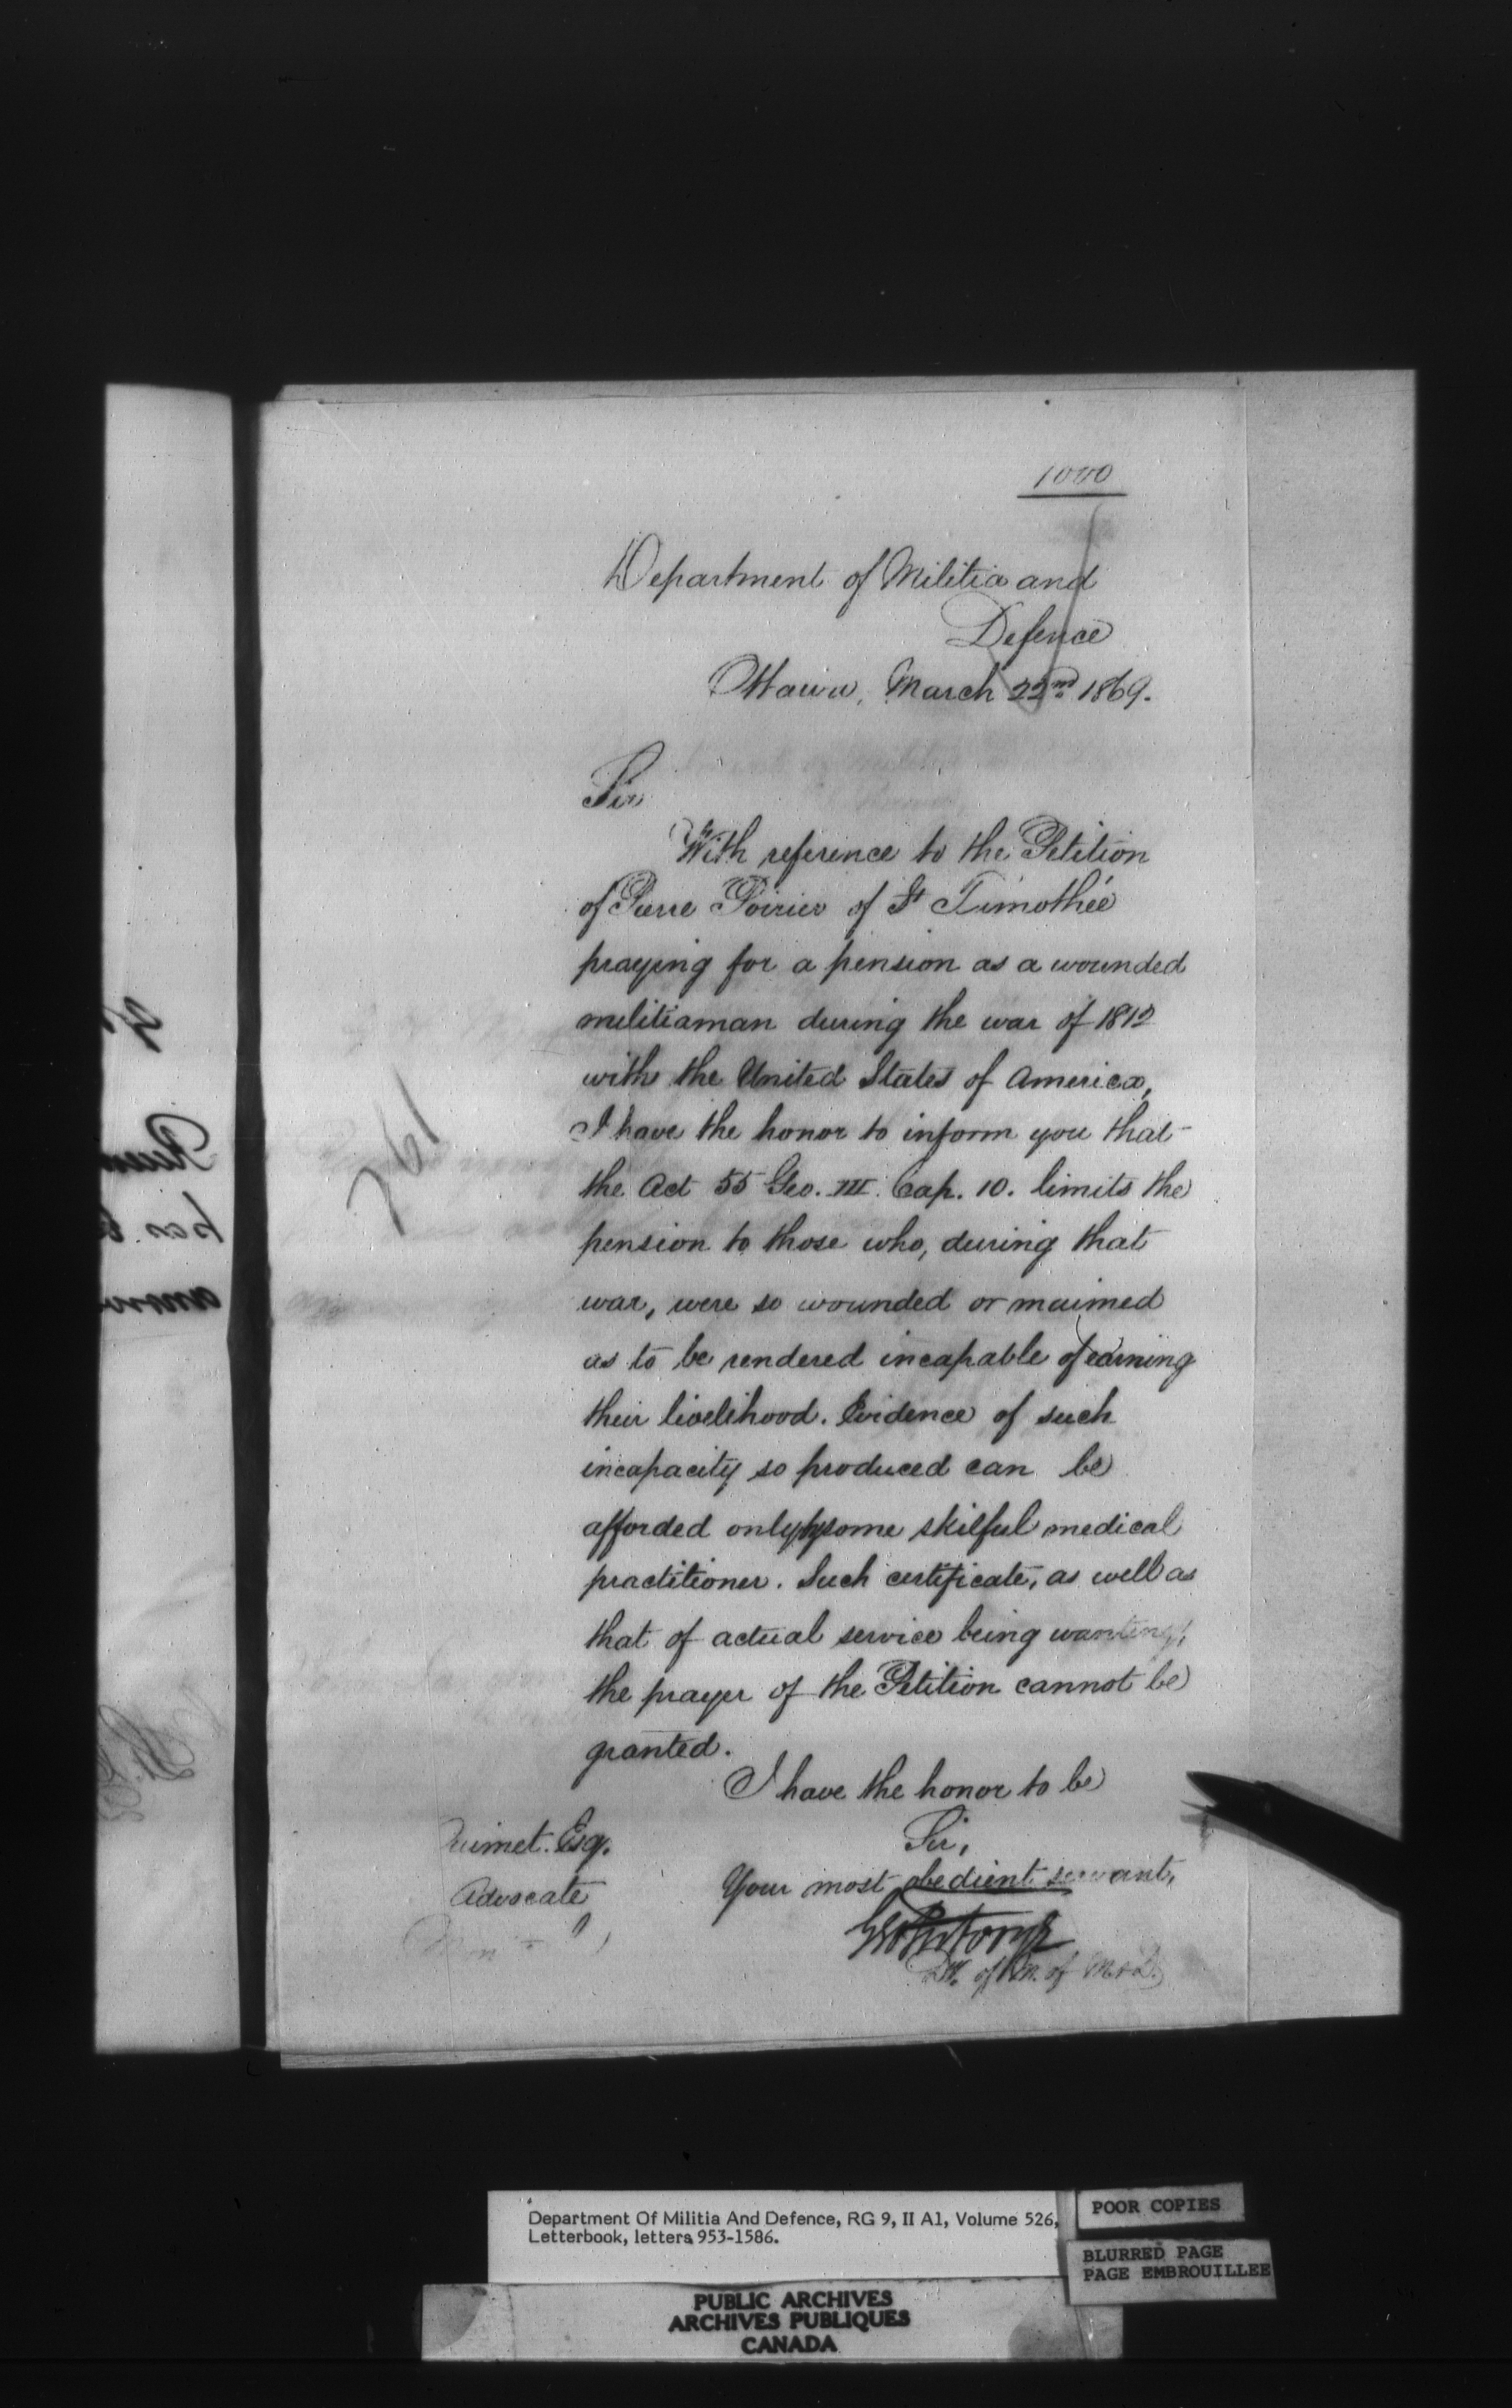 1000
Department of Militia and
Defence
Ottawa, March 22nd 1869.
Sir
With reference to the Petition
of Pierre Poirier of St Timothée
praying for a pension as a wounded
militiaman during the war of 1812
with the United States of America,
I have the honor to inform you that
the Act 55 Geo. III. Cap. 10. limits the
pension to those who, during that
war, were so wounded or maimed
as to be rendered incapable of earning
their livelihood. Evidence of such
incapacity so produced can be
afforded only by some skilful medical
practitioner. Such certificate, as well as
that of actual service being wanting,
the prayer of the Petition cannot be
granted.
I have the honor to be
Sir,
Your most obedient servant,
of M. of M & D.
Ouimet. Esq.
Advocate
761
Department Of Militia And Defence, RG 9, II A1, Volume 526,
Letterbook, letters 953-1586.
POOR COPIES
BLURRED PAGE
PAGE EMBROUILLEE
PUBLIC ARCHIVES
ARCHIVES PUBLIQUES
CANADA